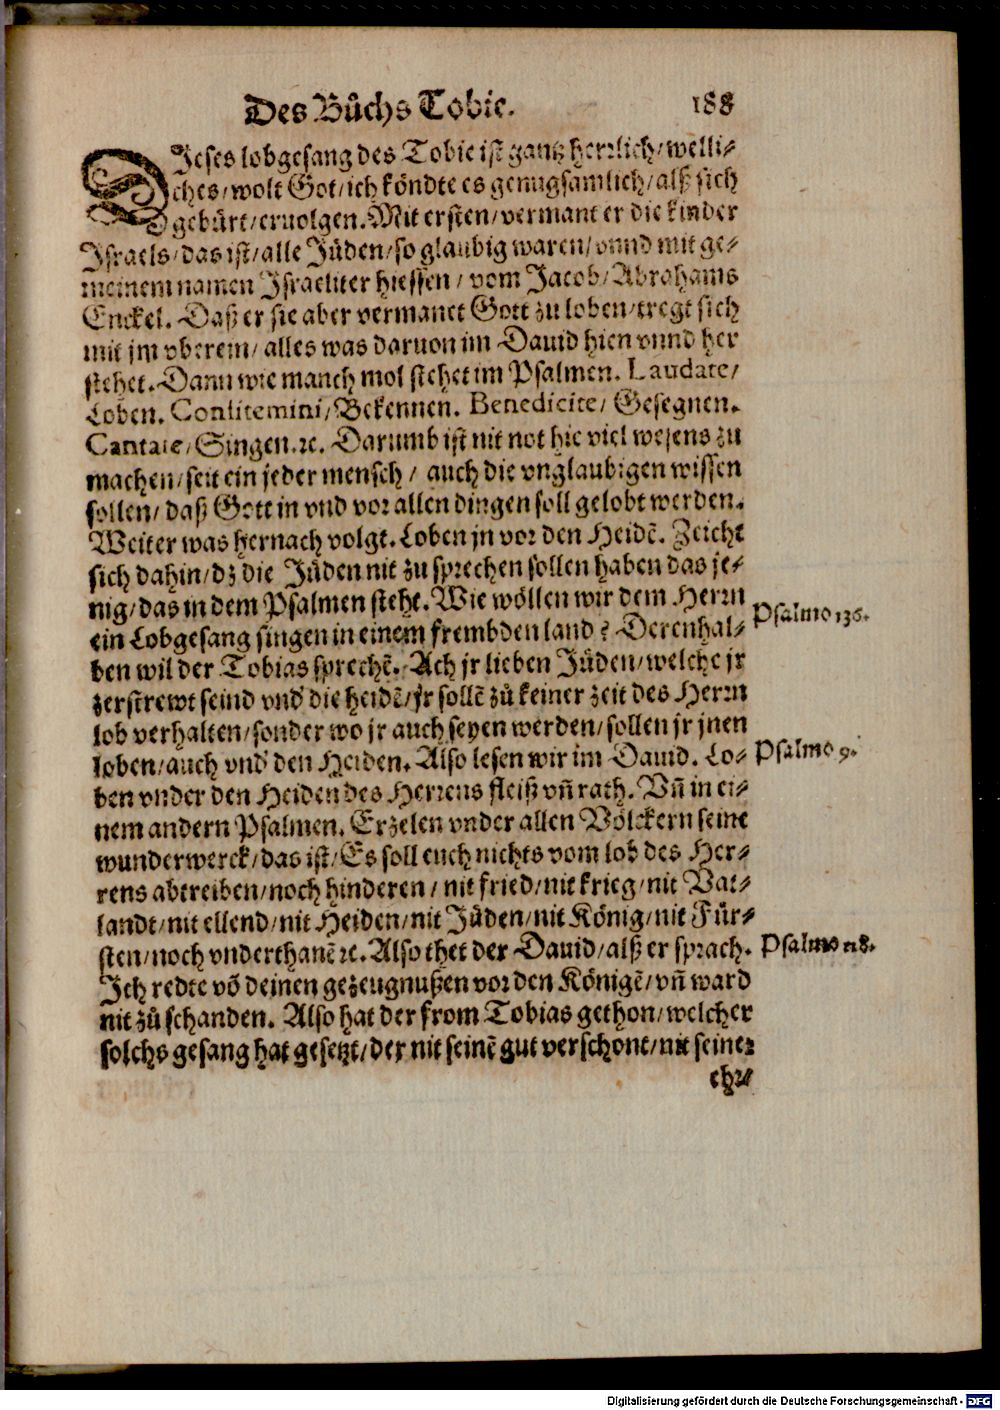 Des Bůchs Tobie. 188
DIeses lobgesang des Tobie ist gantz herrlich/welli⸗
ches/wolt Got/ich köndte es genugsamlich/alß sich
gebürt/eruolgen. Mit ersten/vermant er die kinder
Israels/das ist/alle Jüden/so glaubig waren/vnnd mit ge⸗
meinem namen Israeliter hiessen/vom Jacob/Abrahams
Enckel. Daß er sie aber vermanet Gott zu loben/tregt sich
mit jm vberein/alles was daruon im Dauid hien vnnd her
stehet. Dann wie manch mol stehet im Psalmen. Laudate/
Loben. Confitemini/Bekennen. Benedicite/Gesegnen.
Cantate/Singen.ꝛc. Darumb ist nit not hie viel wesens zu
machen/seit ein jeder mensch/auch die vnglaubigen wissen
sollen/daß Gott in vnd vor allen dingen soll gelobt werden.
Weiter was hernach volgt. Loben jn vor den Heidẽ. Zeicht
sich dahin/dz die Jüden nit zu sprechen sollen haben das je⸗
nig/das in dem Psalmen steht. Wie wöllen wir dem Herrn
Psalmo 136.
ein Lobgesang singen in einem frembden land? Derenhal⸗
ben wil der Tobias sprechẽ. Ach jr lieben Jüden/welche jr
zerstrewt seind vnd' die heidẽ/jr sollẽ zů keiner zeit des Herrn
lob verhalten/sonder wo jr auch seyen werden/sollen jr jnen
loben/auch vnd' den Heiden. Also lesen wir im Dauid. Lo⸗
Psalmo 9.
ben vnder den Heiden des Herrens fleiß vñ rath. Vñ in ei⸗
nem andern Psalmen. Erzelen vnder allen Völckern seine
wunderwerck/das ist/Es soll euch nichts vom lob des Her⸗
rens abtreiben/noch hinderen/nit fried/nit krieg/nit Vat⸗
landt/nit ellend/nit Heiden/nit Jüden/nit König/nit Für⸗
sten/noch vnderthanẽ ꝛc. Also thet der Dauid/alß er sprach.
Psalmo 118.
Ich redte võ deinen gezeugnußen vor den Königẽ/vñ ward
nit zů schanden. Also hat der from Tobias gethon/welcher
solchs gesang hat gesetzt/der nit seinẽ gut verschont/nit seiner
ehr⸗
Digitalisierung gefördert durch die Deutsche Forschungsgemeinschaft - DFG